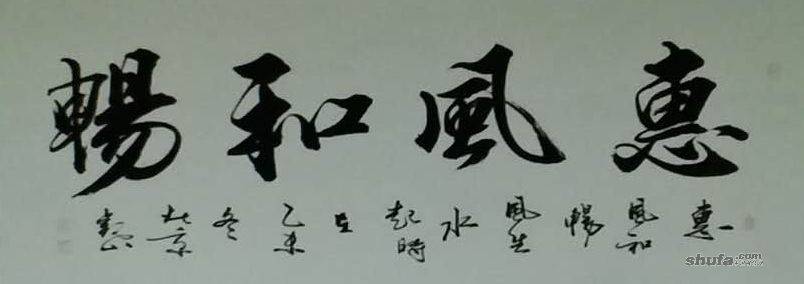 惠風和暢
惠風和暢風生水起時在乙未冬北京
shufa.com